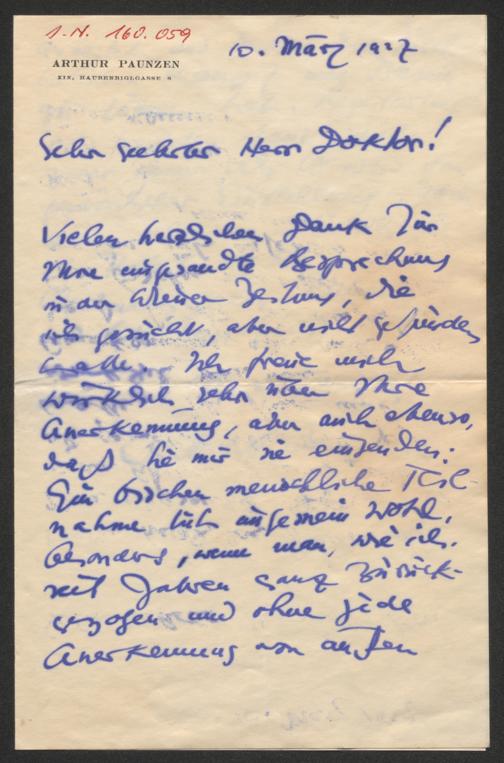 I.N. 160.059
ARTHUR PAUNZEN
XIX, HAUBENBIGLGASSE
10. März 1927
Sehr geehrter Herr Doktor!
Vielen herzlichen Dank für
Ihre eingesandte Besprechung
in der Wiener Zeitung, die
ich gesucht, aber nicht gefunden
hatte. Ich freue mich
wirklich sehr über Ihre
Anerkennung, aber auch ebenso,
daß Sie mir sie einsenden:
Ein bischen menschliche Teil-
nahme tut ungemein wohl,
besonders, wenn man, wie ich,
seit Jahren ganz zurück-
gezogen und ohne jede
Anerkennung von außen